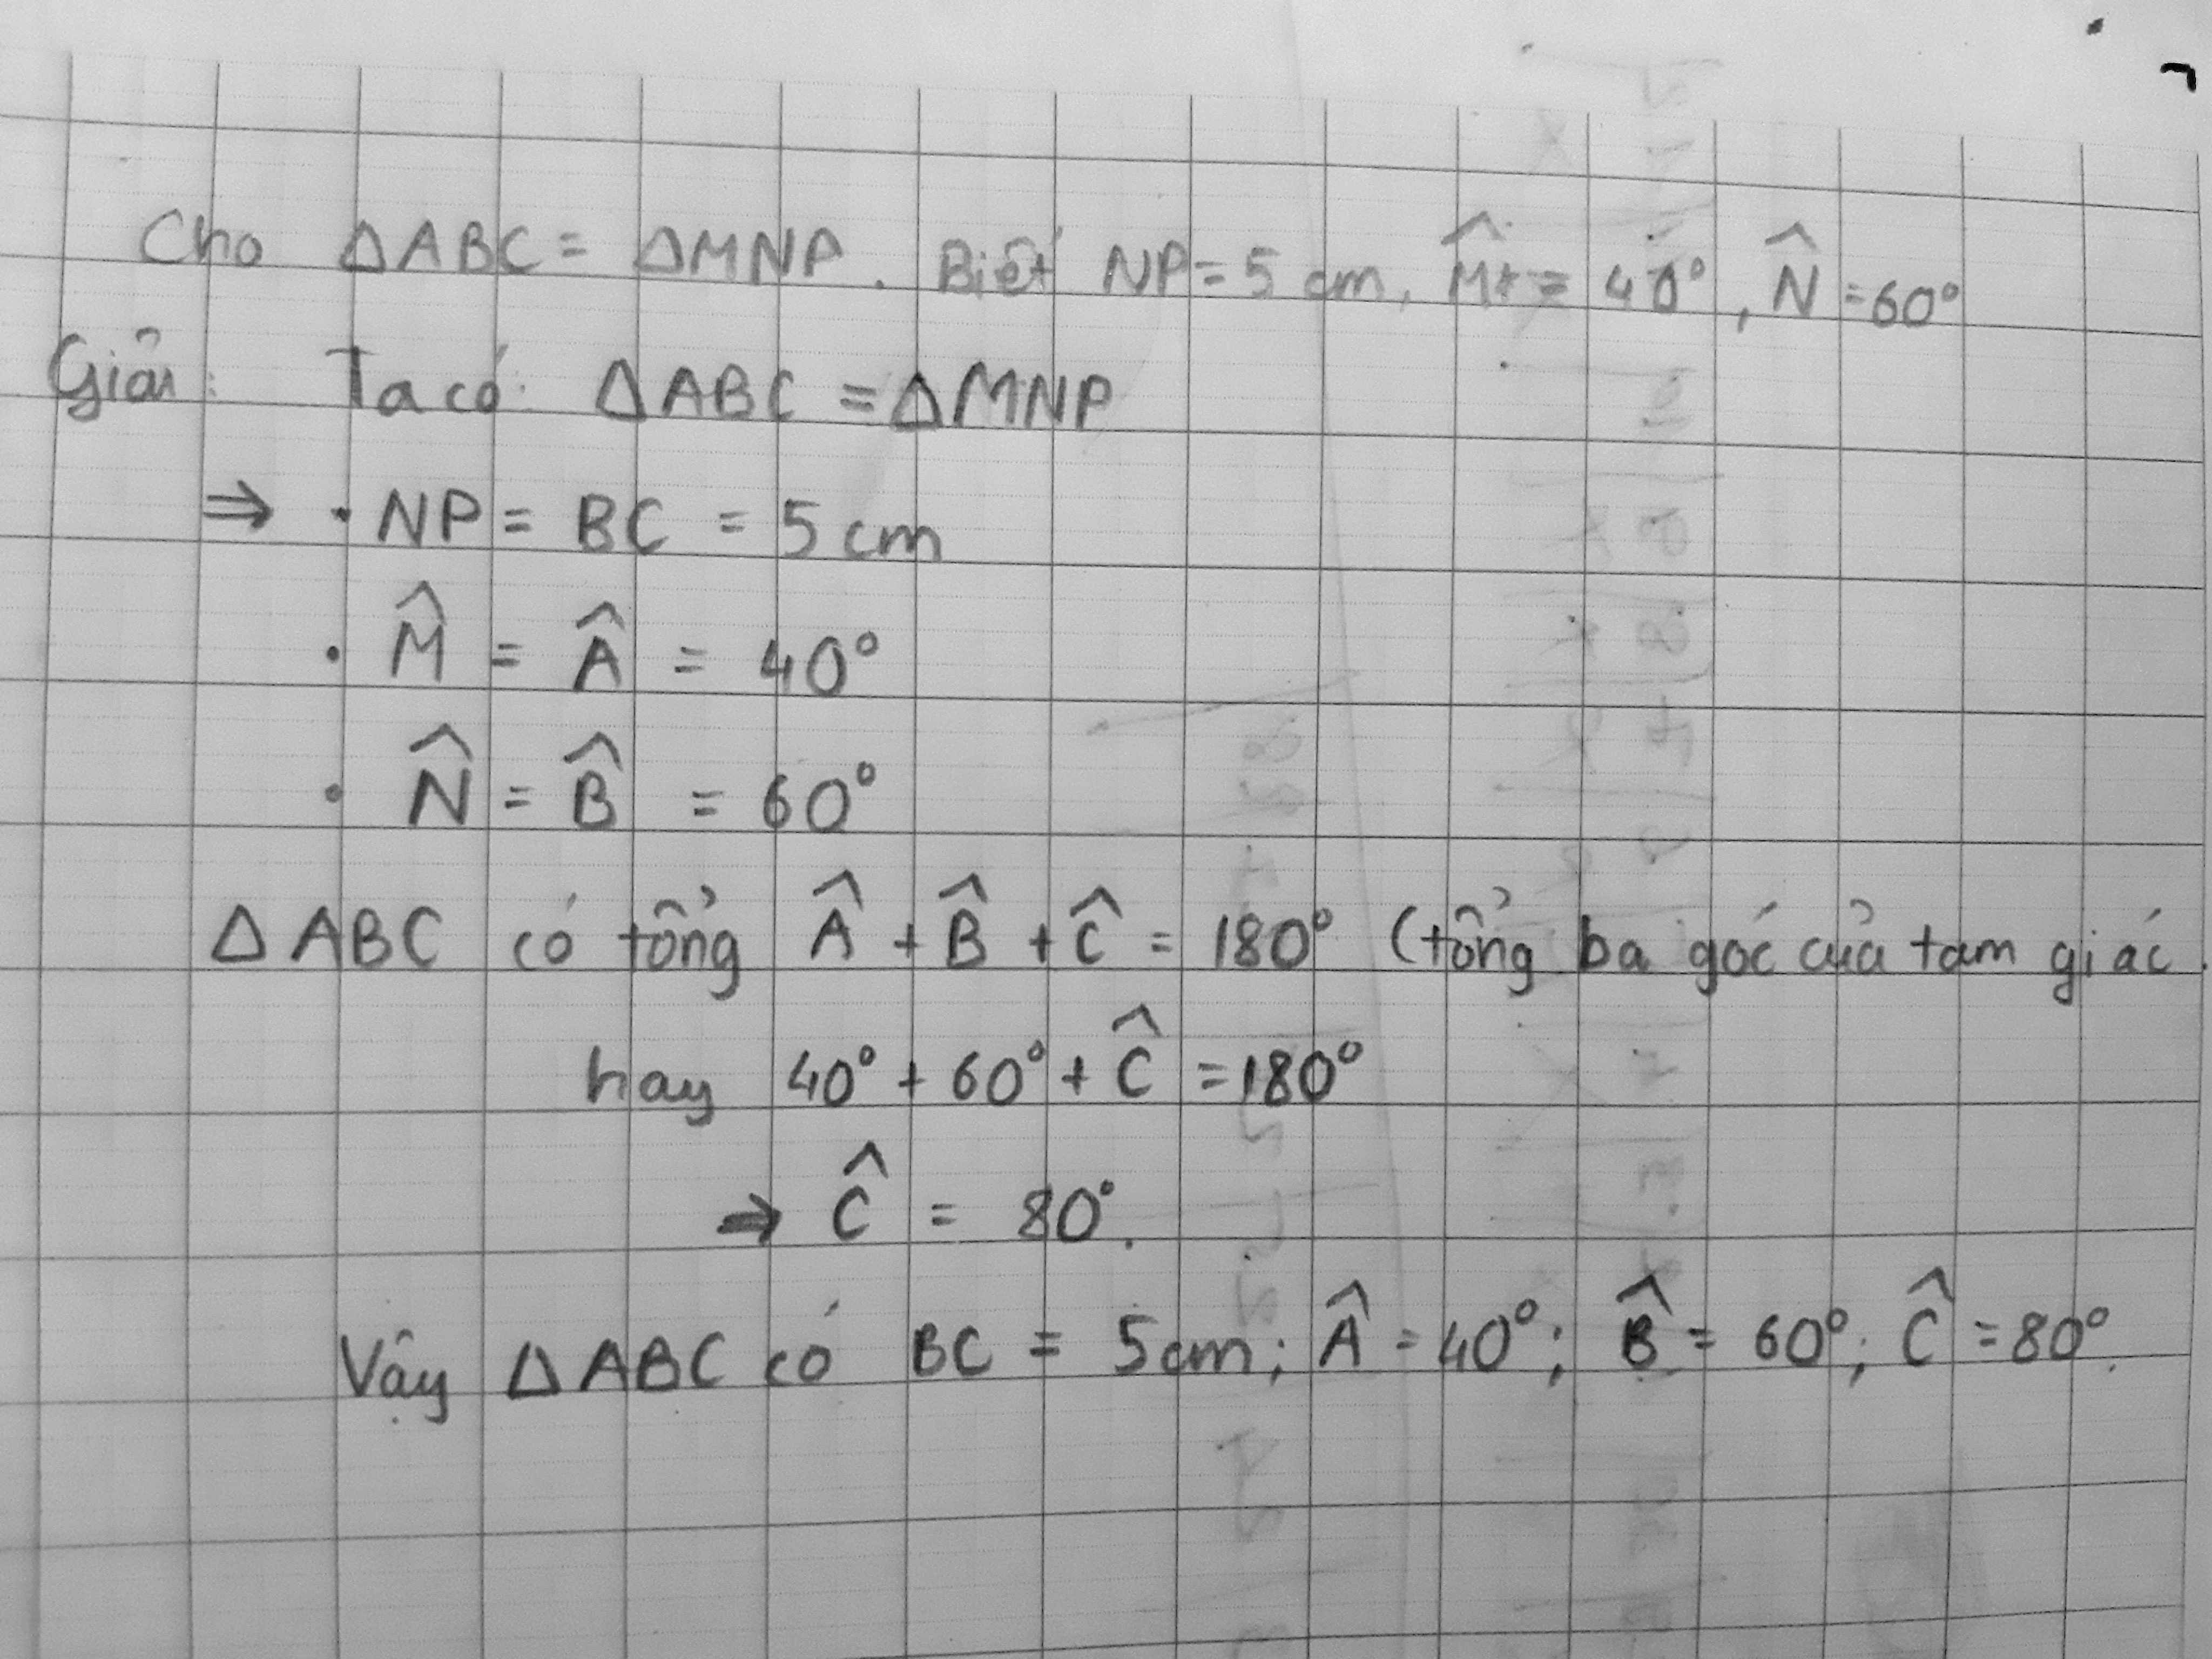 Cho ΔABC = ΔMNP. Biết NP = 5 cm, M̂ = 40°, N̂ = 60°
Giải: Ta có: ΔABC = ΔMNP
⇒ • NP = BC = 5 cm
• M̂ = Â = 40°
• N̂ = B̂ = 60°
ΔABC có tổng Â + B̂ + Ĉ = 180° (tổng ba góc của tam giác.
hay 40° + 60° + Ĉ = 180°
⇒ Ĉ = 80°.
Vậy ΔABC có BC = 5cm; Â = 40°; B̂ = 60°; Ĉ = 80°.